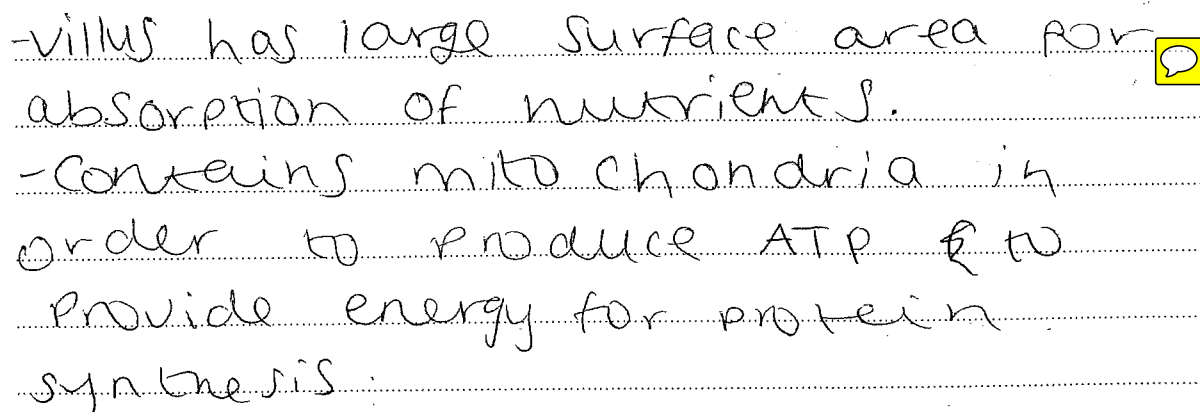 -villus has large surface area for
absorption of nutrients.
-Contains mitochondria in
order to produce ATP to
provide energy for protein
synthesis.